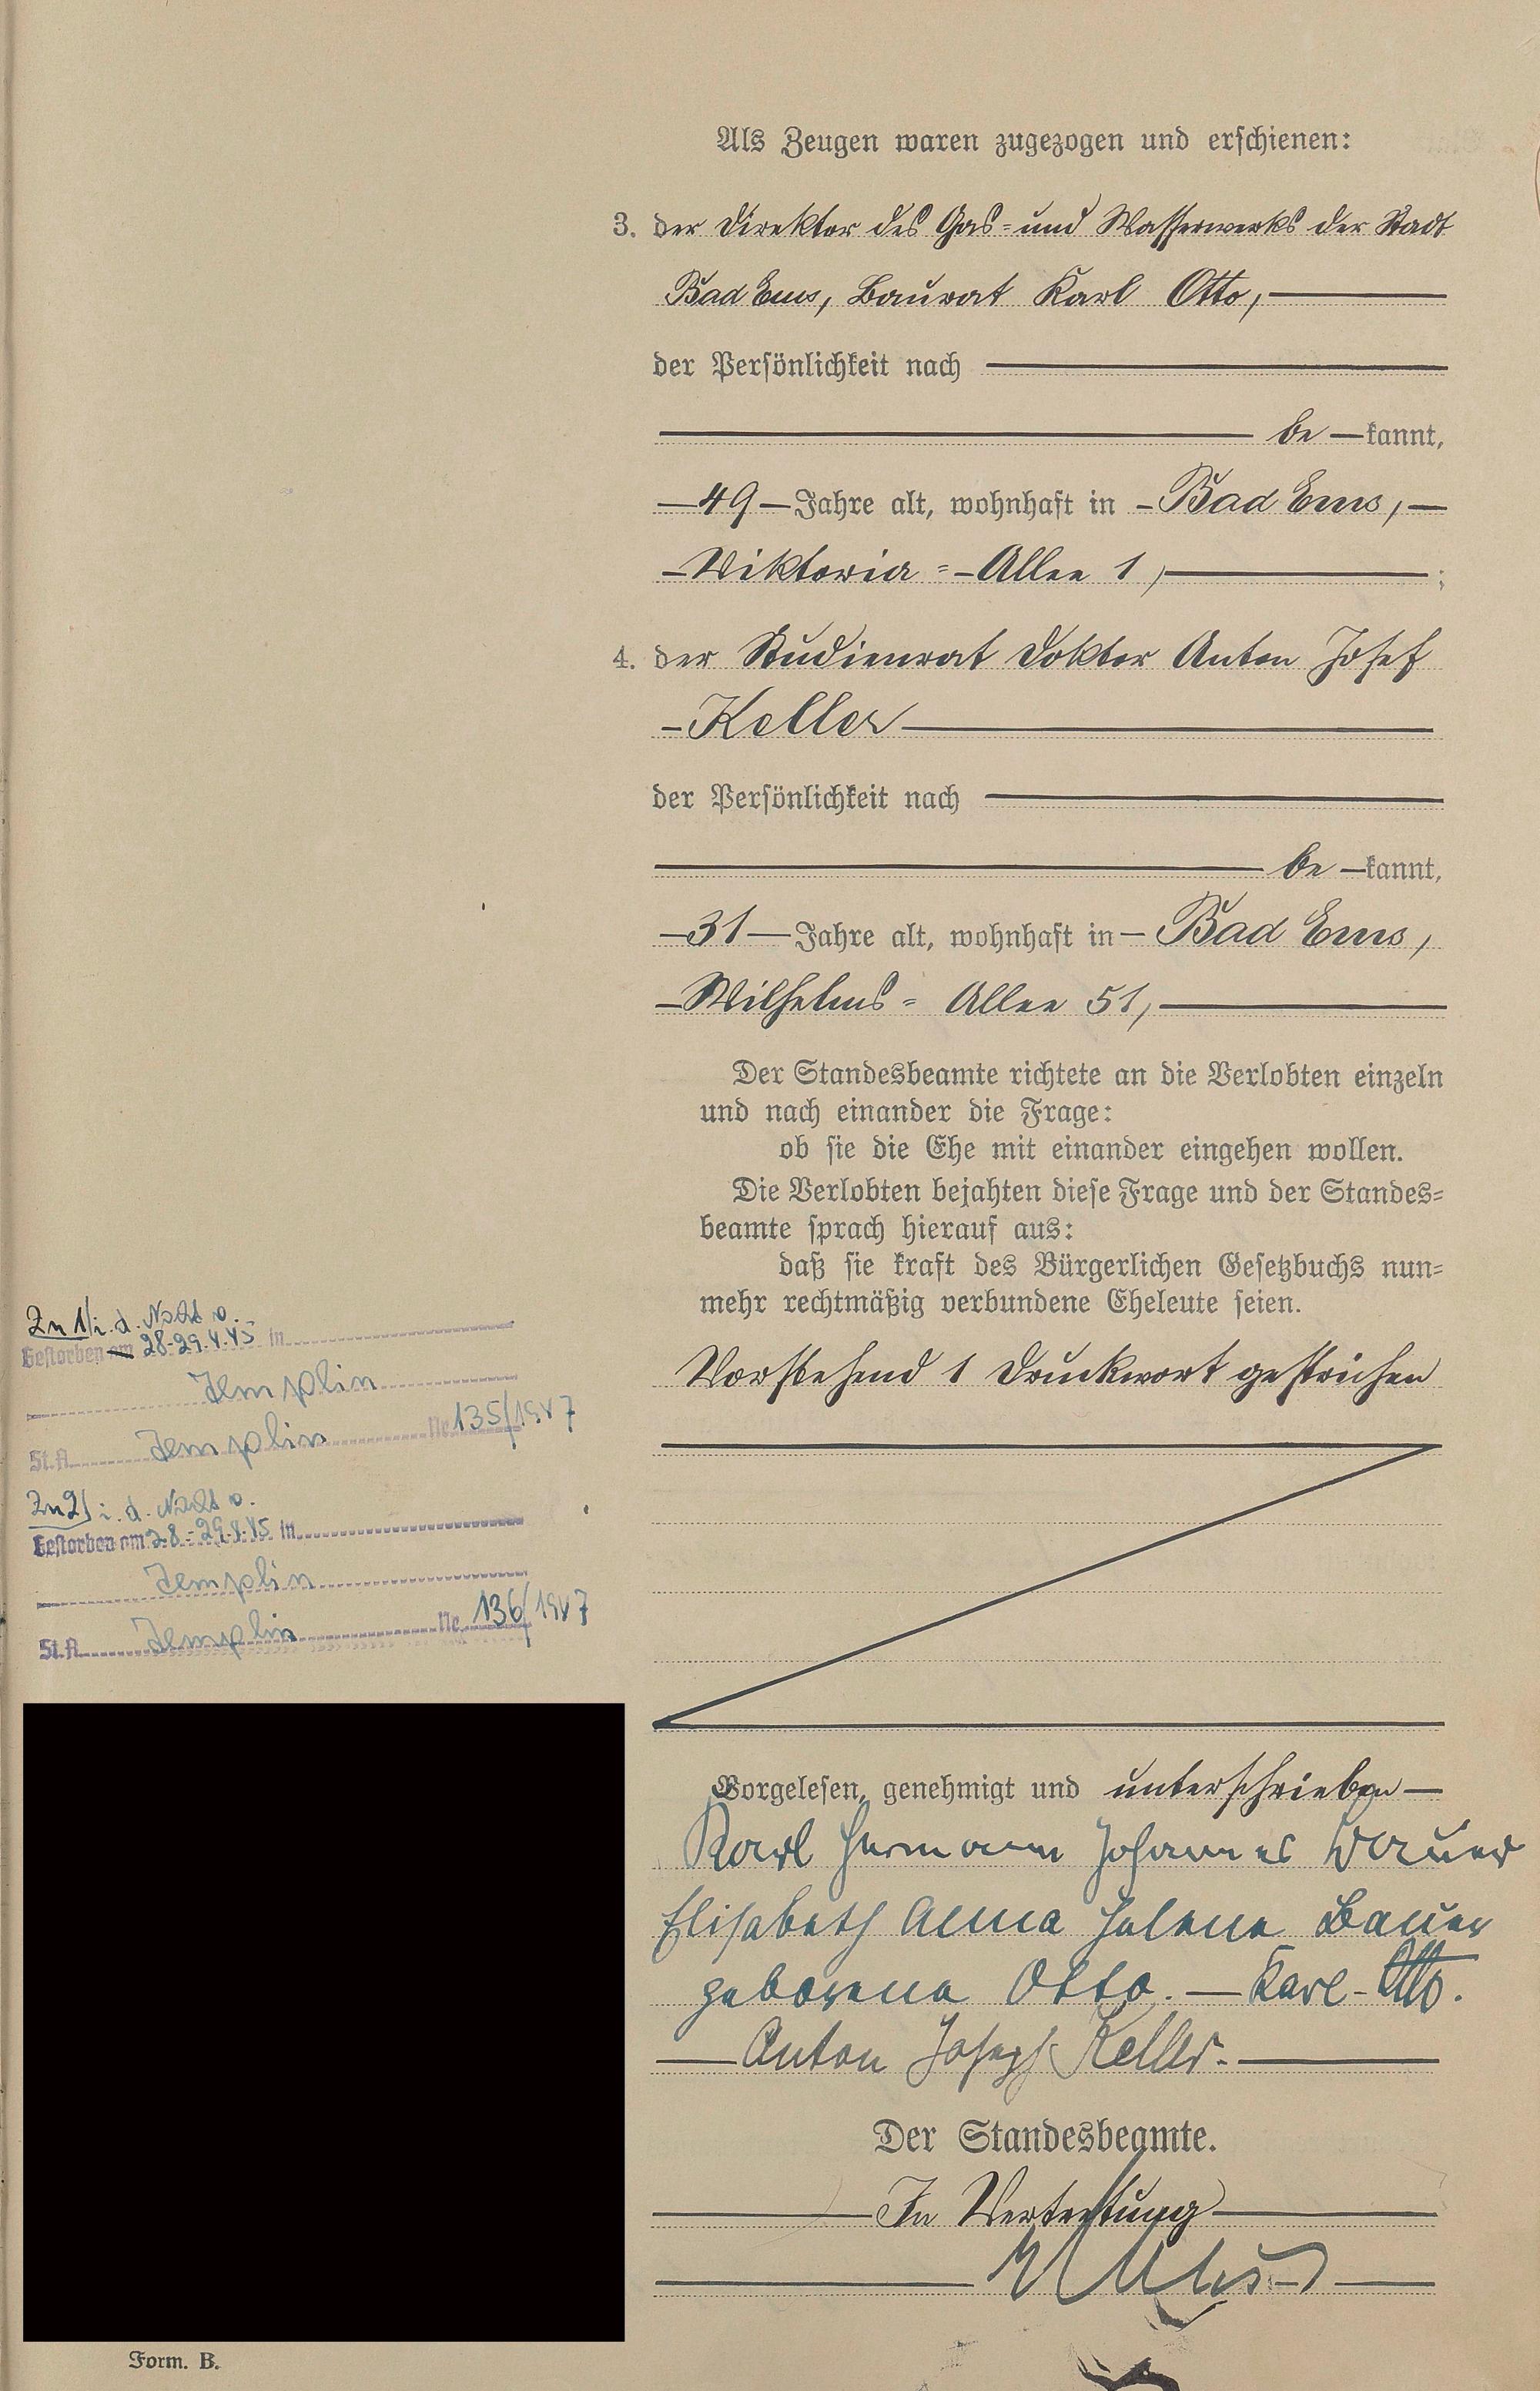 Als Zeugen waren zugezogen und erschienen:
3. der Direktor des Gas- und Wasserwerks der Stadt
Bad Ems, Baurat Karl Otto,
der Persönlichkeit nach
be kannt,
49 Jahre alt, wohnhaft in Bad Ems,
Viktoria-Allee 1, ;
4. der Studienrat Doktor Anton Josef
Keller
der Persönlichkeit nach
be kannt,
31 Jahre alt, wohnhaft in Bad Ems,
Wilhelms-Allee 51,
Der Standesbeamte richtete an die Verlobten einzeln
und nach einander die Frage:
ob sie die Ehe mit einander eingehen wollen.
Die Verlobten bejahten diese Frage und der Standes-
beamte sprach hierauf aus:
daß sie kraft des Bürgerlichen Gesetzbuchs nun-
mehr rechtmäßig verbundene Eheleute seien.
Vorstehend 1 Druckwort gestrichen
Zu 1) i. d. Nacht v.
Gestorben am 28.-29.4.45 in
Templin
St.A. Templin Nr. 135/1947
Zu 2) i. d. Nacht v.
Gestorben am 28.-29.4.45 in
Templin
St.A. Templin Nr. 136/1947
Vorgelesen, genehmigt und unterschrieben
Karl Hermann Johannes Bauer
Elisabeth Anna Helene Bauer
geborene Otto. — Karl Otto.
Anton Joseph Keller.
Der Standesbeamte.
In Vertretung
Form. B.